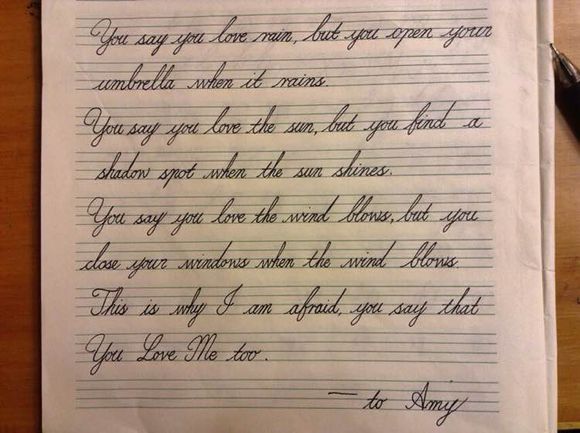 You say you love rain, but you open your
umbrella when it rains.
You say you love the sun, but you find a
shadow spot when the sun shines.
You say you love the wind blows, but you
close your windows when the wind blows.
This is why I am afraid, you say that
You Love Me too.
— to Amy